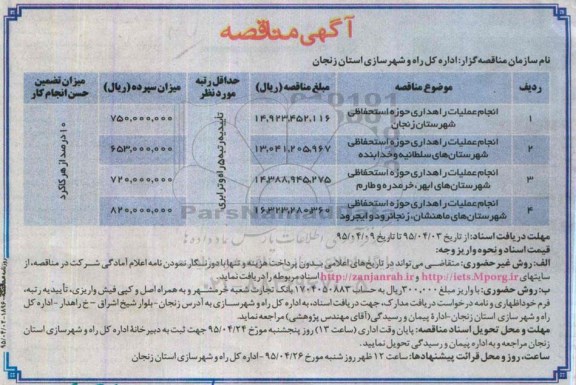 آگهی مناقصه
نام سازمان مناقصه گزار: اداره کل راه و شهرسازی استان زنجان
ردیف موضوع مناقصه مبلغ مناقصه (ریال) حداقل رتبه مورد نظر میزان سپرده (ریال) میزان تضمین حسن انجام کار
۱ انجام عملیات راهداری حوزه استحفاظی شهرستان زنجان ۱۴,۹۲۳,۴۵۲,۱۱۶ ۷۵۰,۰۰۰,۰۰۰
۲ انجام عملیات راهداری حوزه استحفاظی شهرستان های سلطانیه و خدابنده ۱۳,۰۴۱,۲۰۵,۹۶۷ ۶۵۳,۰۰۰,۰۰۰
۳ انجام عملیات راهداری حوزه استحفاظی شهرستان های ابهر، خرمدره و طارم ۱۴,۳۸۸,۹۴۵,۲۷۵ ۷۲۰,۰۰۰,۰۰۰
۴ انجام عملیات راهداری حوزه استحفاظی شهرستان های ماهنشان، زنجانرود و ایجرود ۱۶,۳۲۳,۲۸۰,۳۶۰ ۸۲۰,۰۰۰,۰۰۰
تاییدیه رتبه ۵ راه و ترابری
۱۰ درصد از هر کارکرد
مهلت دریافت اسناد: از تاریخ ۹۵/۰۴/۰۳ تا تاریخ ۹۵/۰۴/۰۹
قیمت اسناد و نحوه واریز وجه:
الف: روش غیر حضوری: متقاضی می تواند در تاریخ های اعلامی بدون پرداخت هزینه و تنها با دورنگار نمودن نامه اعلام آمادگی شرکت در مناقصه، از
سایتهای http://iets.Mporg.ir و http://zanjanrah.ir اسناد مربوطه را دریافت نماید.
ب: روش حضوری: با واریز مبلغ ۳۰۰,۰۰۰ ریال به حساب ۱۷۰۴۰۵۰۸۸۳ بانک تجارت شعبه خرمشهر و به همراه اصل و کپی فیش واریزی، تأییدیه رتبه،
فرم خوداظهاری و نامه درخواست دریافت مدارک، جهت دریافت اسناد، به اداره کل راه و شهرسازی به آدرس زنجان-بلوار شیخ اشراق -خ راهدار -اداره کل
راه و شهرسازی استان زنجان-اداره پیمان و رسیدگی (آقای مهندس پژوهشی) مراجعه نماید.
مهلت و محل تحویل اسناد مناقصه: پایان وقت اداری (ساعت ۱۳) روز پنجشنبه مورخ ۹۵/۰۴/۲۴ جهت ثبت به دبیرخانه اداره کل راه و شهرسازی استان
زنجان مراجعه و به اداره پیمان و رسیدگی تحویل نمایید.
ساعت، روز و محل قرائت پیشنهادها: ساعت ۱۲ ظهر روز شنبه مورخ ۹۵/۰۴/۲۶-اداره کل راه و شهرسازی استان زنجان